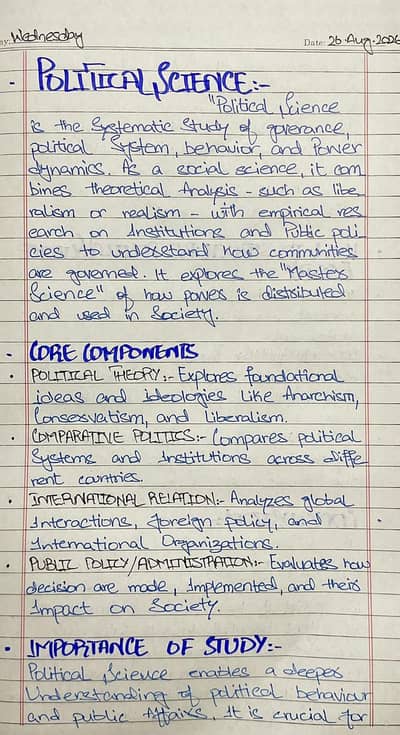 ay: Wednesday Date: 26-Aug-2026
- POLITICAL SCIENCE:-
"Political Science
is the Systematic Study of goverance,
political System, behavior, and Power
dynamics. As a social science, it com
bines theoretical Analysis - such as libe
ralism or realism - with empirical res
earch on Institutions and Public poli
cies to understand how communities
are governed. It explores the "Master
Science" of how power is distributed
and used in Society.
- CORE COMPONENTS
• POLITICAL THEORY:- Explores foundational
ideas and Ideologies Like Anarchism,
Conservatism, and Liberalism.
• COMPARATIVE POLITICS:- Compares political
Systems and Institutions across diffe
rent countries.
• INTERNATIONAL RELATION:- Analyzes global
Interactions, foreign policy, and
International Organizations.
• PUBLIC POLICY/ADMINISTRATION:- Evaluates how
decision are made, Implemented, and their
Impact on Society.
• IMPORTANCE OF STUDY:-
Political Science enables a deeper
Understanding of political behaviour
and public Affairs. It is crucial for